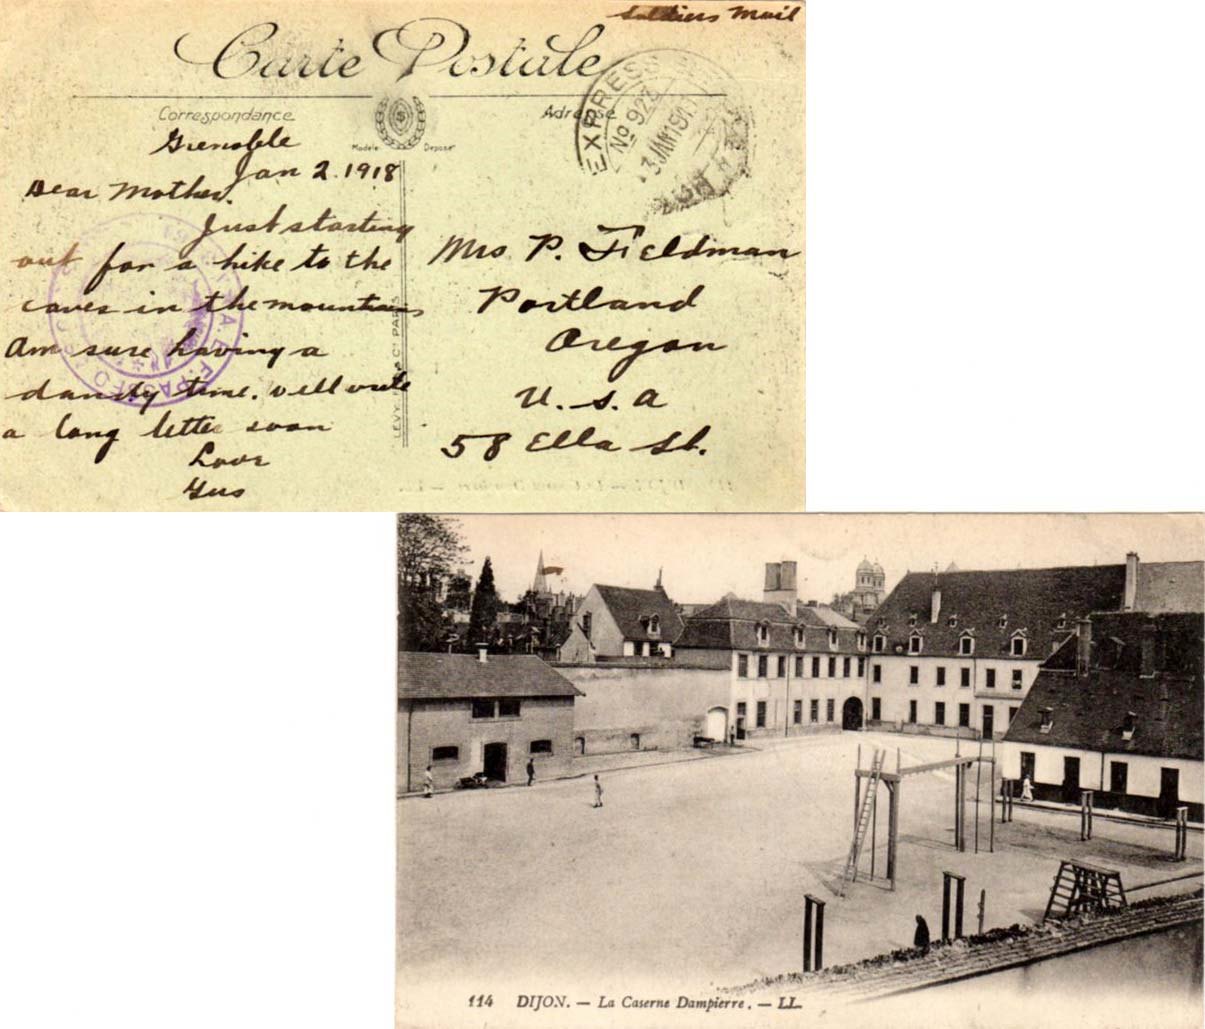 Soldiers Mail
Carte Postale
Correspondance
Adresse
Modèle Déposé
EXPRESS
No 922
3 JAN 191
Grenoble
Jan 2. 1918
Dear Mother.
Just starting
out for a hike to the
caves in the mountains
Am sure having a
dandy time. Will write
a long letter soon
Love
Gus
Mrs P. Fieldman
Portland
Oregon
U. S. A
58 Ella St.
A. E. F. PASSED
LEVY PARIS
114 DIJON. — La Caserne Dampierre. — LL.